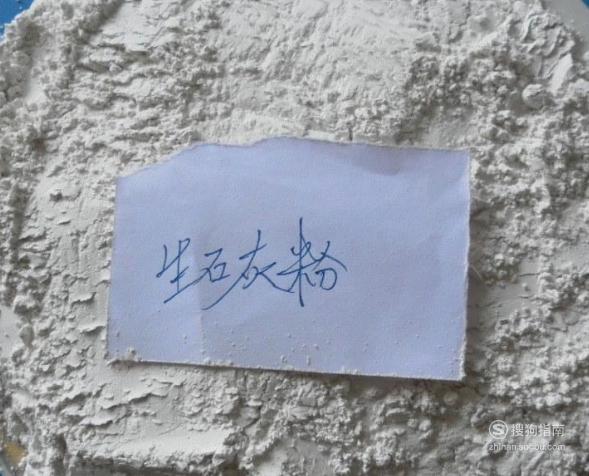 生石灰粉
搜狗指南
zhinan.sogou.com